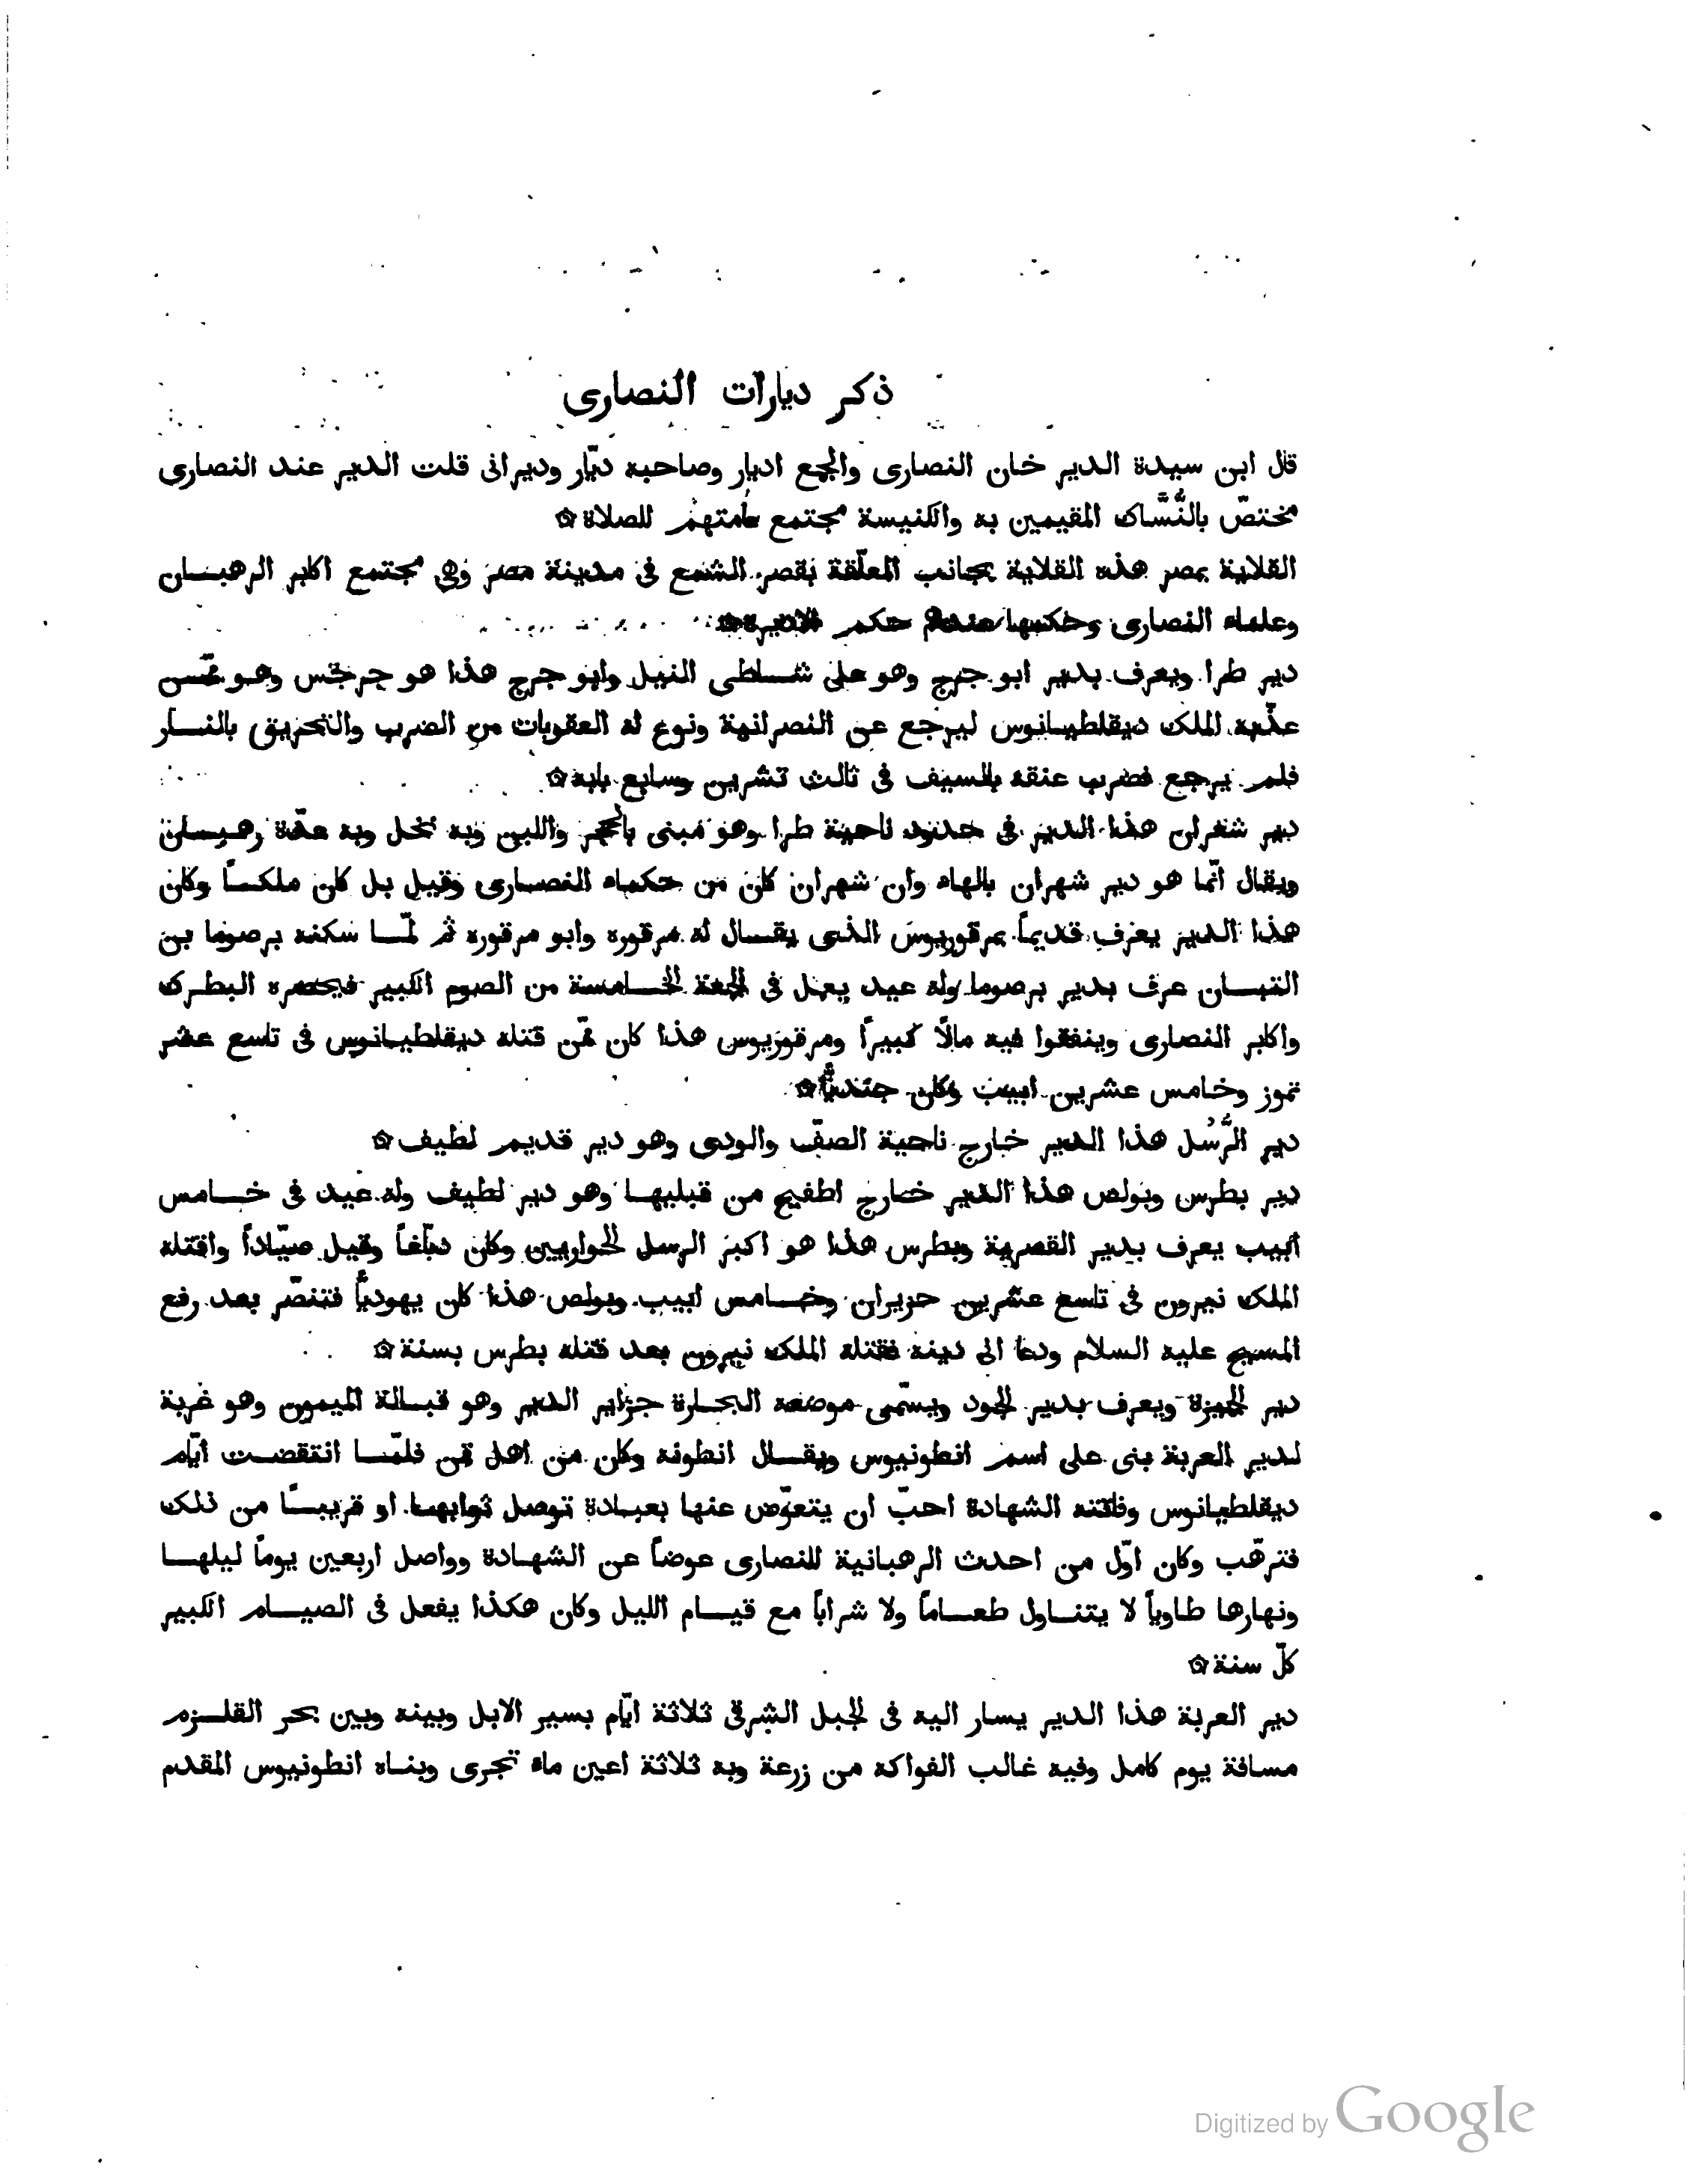 ذكر ديارات النصارى
قال ابن سيدة الدير خان النصارى والجمع اديار وصاحبه ديّار وديرانى قلت الدير عند النصارى
مختصّ بالنُّسَّاك المقيمين به والكنيسة مجتمع عامتهم للصلاة ۞
القلاية بمصر هذه القلاية بجانب المعلّقة بقصر الشمع فى مدينة مصر وهى مجتمع اكابر الرهبان
وعلماء النصارى وحكمها عندهم حكم الاديرة ۞
دير طرا ويعرف بدير ابو جرج وهو على شاطى النيل وابو جرج هذا هو جرجس وهو ممّن
عذّبه الملك ديقلطيانوس ليرجع عن النصرانية ونوع له العقوبات من الضرب والتحريق بالنار
فلم يرجع فضرب عنقه بالسيف فى ثالث تشرين وسابع بابه ۞
دير شغران هذا الدير فى حدود ناحية طرا وهو مبنى بالحجر واللبن وبه نخل وبه عدّة رهبان
ويقال انّما هو دير شهران بالهاء وان شهران كان من حكماء النصارى وقيل بل كان ملكاً وكان
هذا الدير يعرف قديماً بمرقوريوس الذى يقال له مرقوره وابو مرقوره ثم لمّا سكنه برصوما بن
التبان عرف بدير برصوما وله عيد يعمل فى الجمعة الخامسة من الصوم الكبير فيحضره البطرك
واكابر النصارى وينفقوا فيه مالًا كبيراً ومرقوريوس هذا كان ممّن قتله ديقلطيانوس فى تاسع عشر
تموز وخامس عشرين ابيب وكان جنديًّا ۞
دير الرُّسُل هذا الدير خارج ناحية الصفّ والودى وهو دير قديم لطيف ۞
دير بطرس وبولص هذا الدير خارج اطفيح من قبليها وهو دير لطيف وله عيد فى خامس
ابيب يعرف بدير القصرية وبطرس هذا هو اكبر الرسل الحواريين وكان دبّاغاً وقيل صيّاداً واقتله
الملك نيرون فى تاسع عشرين حزيران وخامس ابيب وبولص هذا كان يهوديًّا فتنصّر بعد رفع
المسيح عليه السلام ودعا الى دينه فقتله الملك نيرون بعد قتله بطرس بسنة ۞
دير الجميزة ويعرف بدير الجود ويسمّى موضعه البحارة جزاير الدير وهو قبالة الميمون وهو غربة
لدير العربة بنى على اسم انطونيوس ويقال انطونه وكان من اهل قمن فلمّا انتقضت ايّام
ديقلطيانوس وفاتته الشهادة احبّ ان يتعوّض عنها بعبادة توصل ثوابها او قريباً من ذلك
فترهّب وكان اوّل من احدث الرهبانية للنصارى عوضاً عن الشهادة وواصل اربعين يوماً ليلها
ونهارها طاوياً لا يتناول طعاماً ولا شراباً مع قيام الليل وكان هكذا يفعل فى الصيام الكبير
كلّ سنة ۞
دير العربة هذا الدير يسار اليه فى الجبل الشرقى ثلاثة ايّام بسير الابل وبينه وبين بحر القلزم
مسافة يوم كامل وفيه غالب الفواكه من زرعة وبه ثلاثة اعين ماء تجرى وبناه انطونيوس المقدم
Digitized by Google